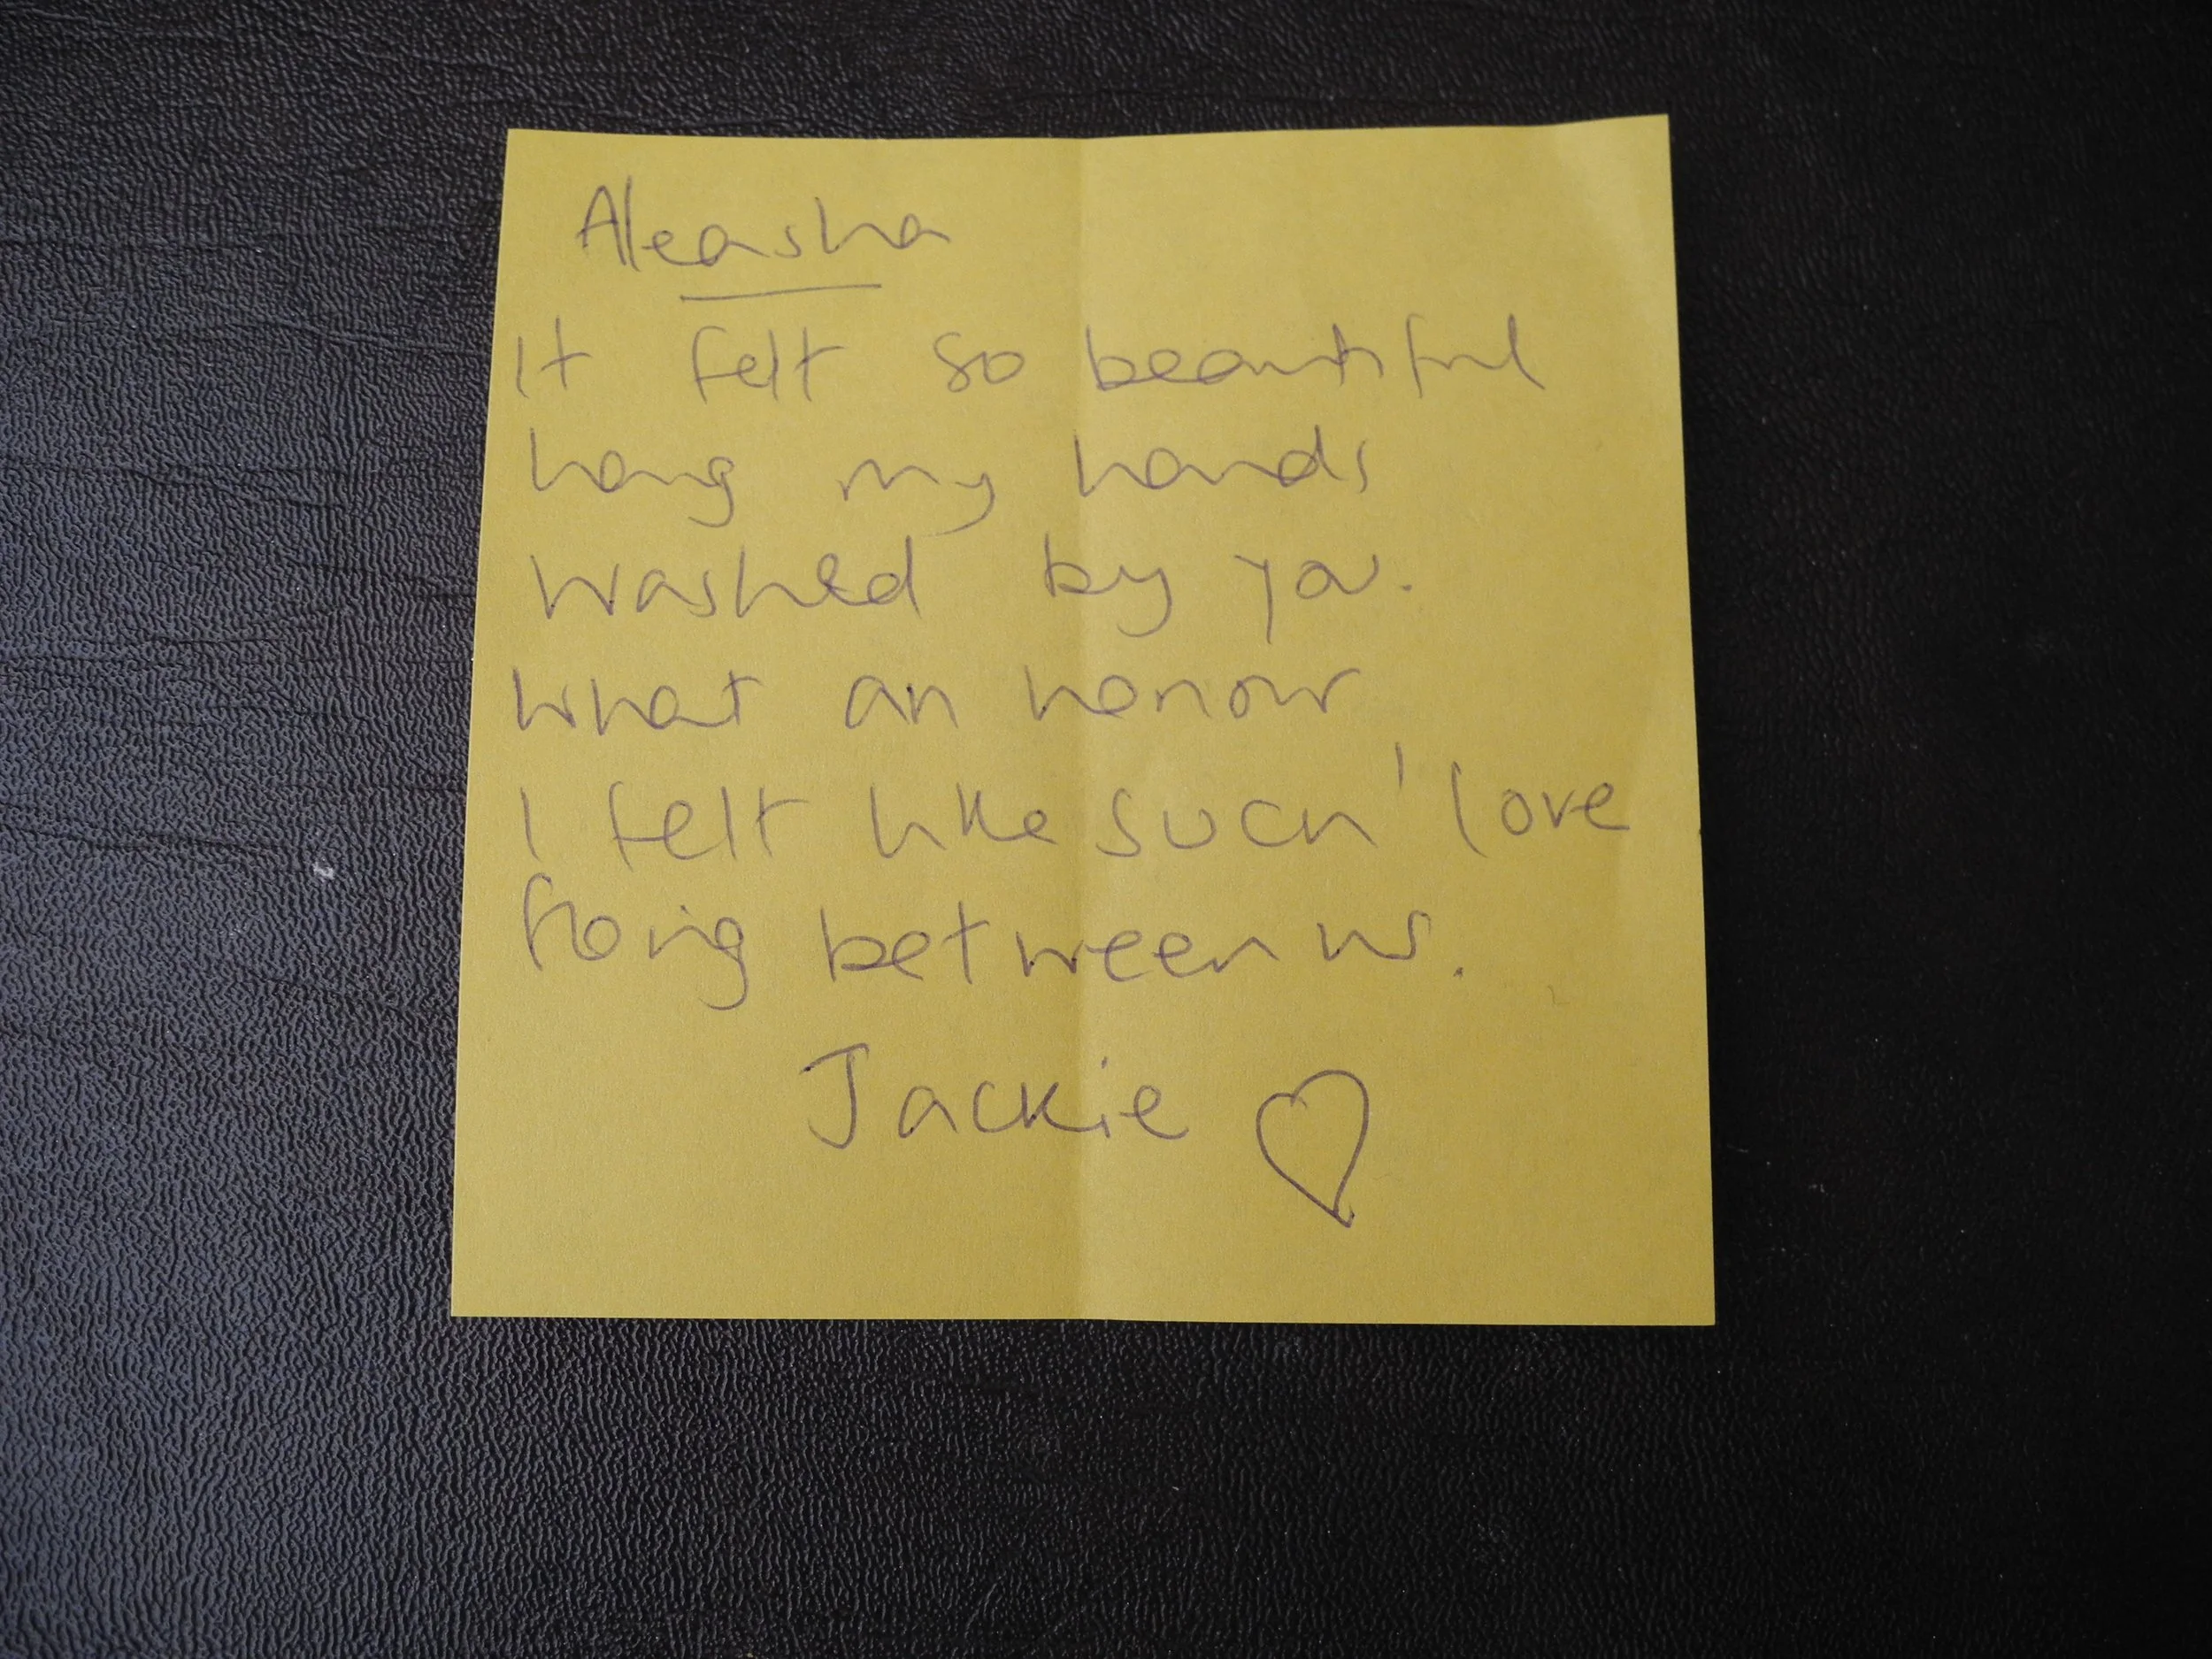 Aleasha
It felt so beautiful
having my hands
washed by you.
What an honour
I felt like such' love
floing between us.
Jackie